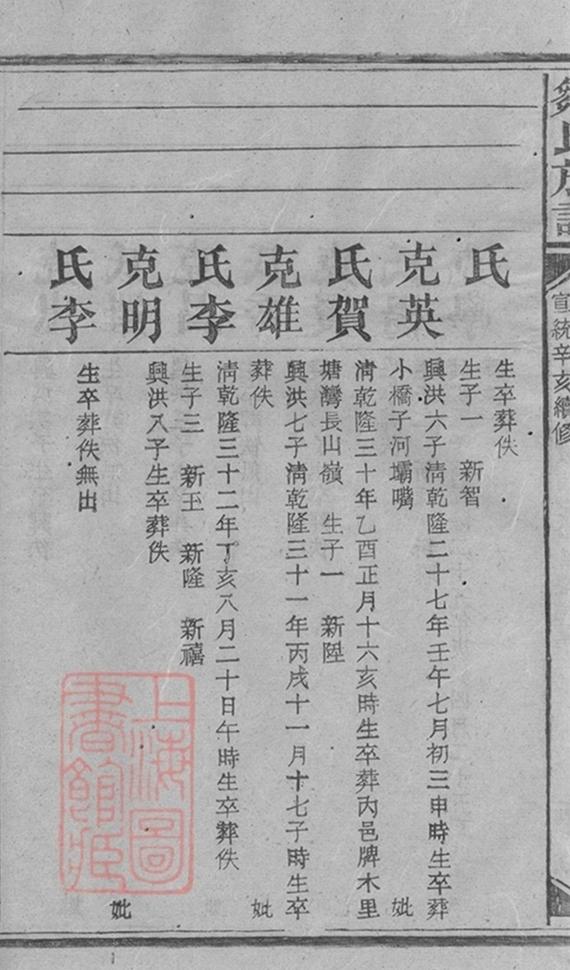 鄒氏族譜
宣統辛亥續修
氏
生卒葬佚
生子一 新智
克英
興洪六子清乾隆二十七年壬午七月初三申時生卒葬
小橋子河壩嘴 妣
氏賀
清乾隆三十年乙酉正月十六亥時生卒葬丙邑牌木里
塘灣長山嶺 生子一 新陞
克雄
興洪七子清乾隆三十一年丙戌十一月十七子時生卒
葬佚 妣
氏李
清乾隆三十二年丁亥八月二十日午時生卒葬佚
生子三 新玉 新隆 新禧
克明
興洪八子生卒葬佚 妣
氏李
生卒葬佚無出
上海圖書館藏